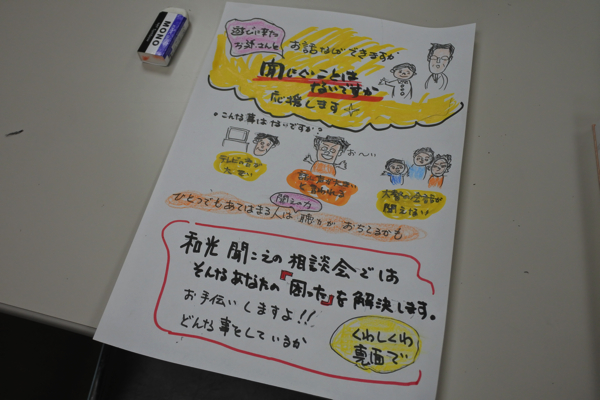 MONO
遊びに来た
お孫さんと
お話などできますか
聞にくいことは
ないですか
応援します
・こんな事はないですか?
お〜い
テレビの音が
大きい
話し声が大きい
と言われる
大勢の会話が
聞えない
聞えの力
ひとつでもあてはまる人は聴力がおちてるかも
和光 聞こえの相談会では
そんなあなたの『困った』を解決します。
お手伝いしますよ!!
どんな事をしているか
くわしくわ
裏面で